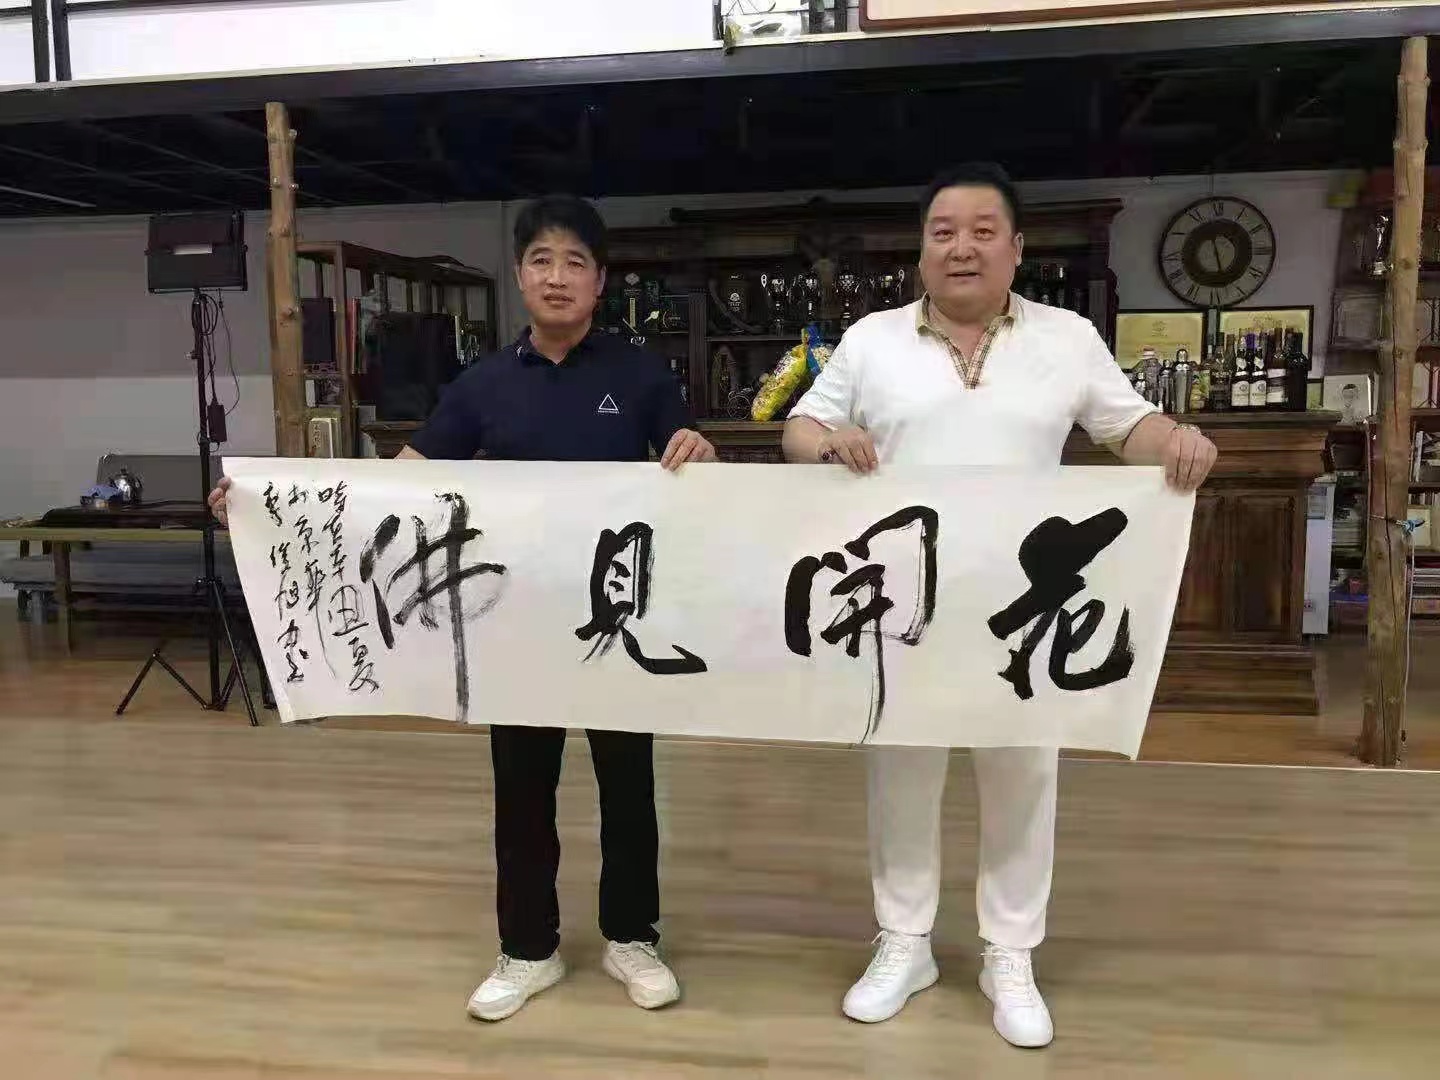 花開見佛
時在辛丑夏
於京華
李俊旭書